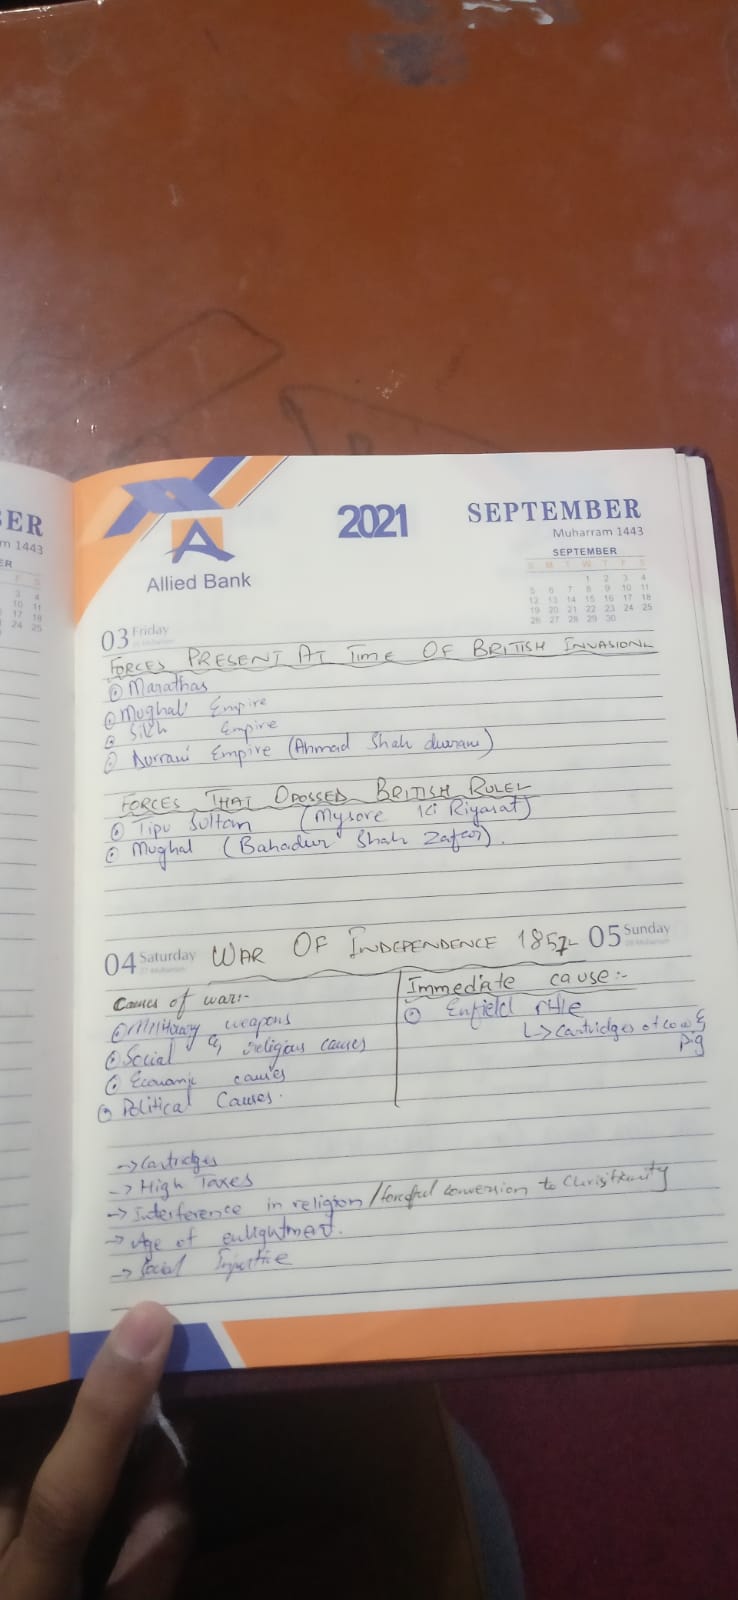 BER
m 1443
ER
F S
3 4
10 11
17 18
24 25
2021
SEPTEMBER
Muharram 1443
SEPTEMBER
S M T W T F S
1 2 3 4
5 6 7 8 9 10 11
12 13 14 15 16 17 18
19 20 21 22 23 24 25
26 27 28 29 30
Allied Bank
03 Friday
FORCES PRESENT AT TIME OF BRITISH INVASION
Marathas
Mughal Empire
Sikh Empire
Durrani Empire (Ahmad Shah durrani)
FORCES THAT OPOSSED BRITISH RULE
Tipu Sultan (Mysore Ki Riyasat)
Mughal (Bahadur Shah Zafar).
04 Saturday WAR OF INDEPENDENCE 1857 05 Sunday
Causes of war:-
Military weapons
Social & religious causes
Economic causes
Political Causes.
Immediate cause:-
Enfield rifle
↳ cartridges of cow &
pig
→ Cartridges
→ High Taxes
→ Interference in religion / forceful conversion to Christianity
→ Age of enlightment.
→ Social Injustice